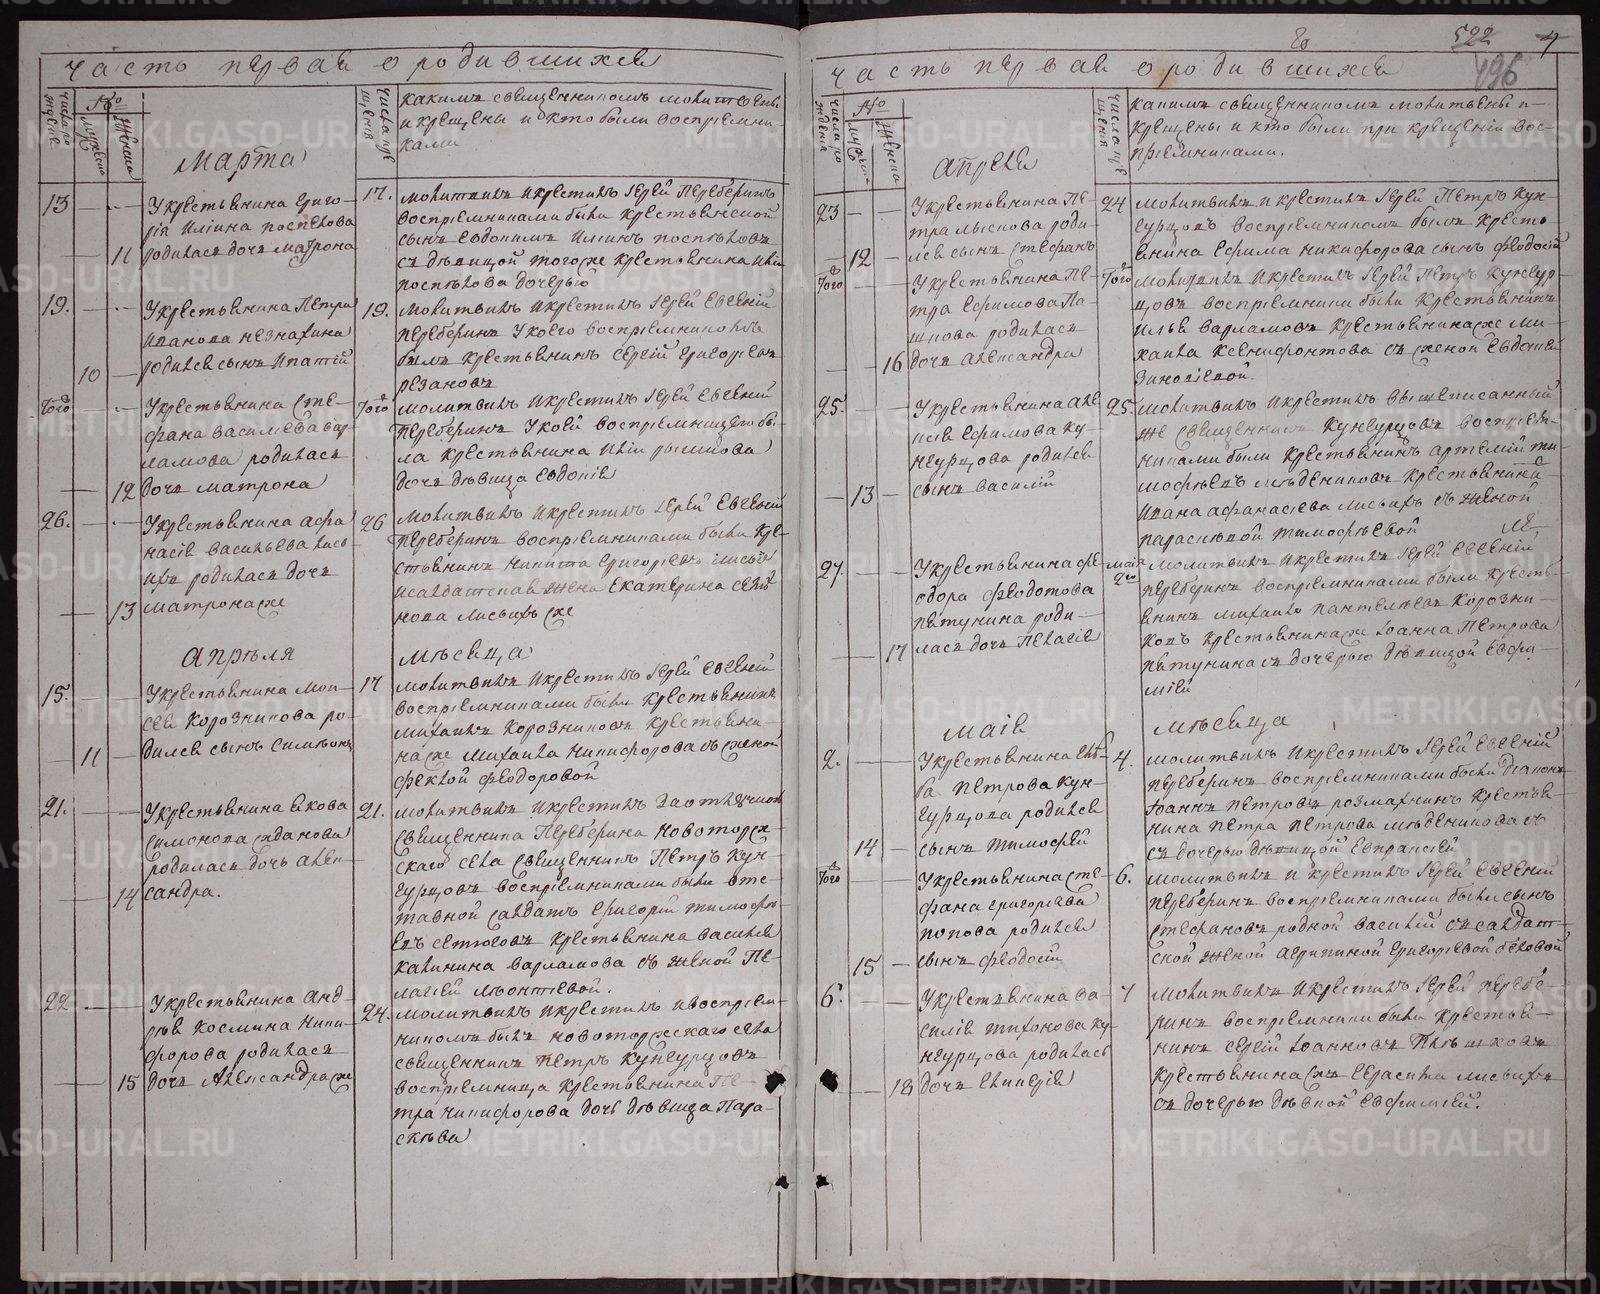 часть первая о родившихся
числа рождения
№
мужеска
женска
Марта
числа крещения
какимъ священникомъ молитвены
и крещены и кто были воспріемни-
ками
13
11
У крестьянина Григо-
рія Иліина Поспѣлова
родилась дочь Матрона
17.
молитвилъ и крестилъ Іерей Переберинъ
воспріемниками были крестьянской
сынъ Евдокимъ Иліинъ Поспѣловъ
съ дѣвицой того же крестьянина Иліи
Поспѣлова дочерью
19.
10
У крестьянина Петра
Иванова Незнахина
родился сынъ Ипатій
19.
молитвилъ и крестилъ Іерей Евгеній
Переберинъ у коего воспріемникомъ
былъ крестьянинъ Сергій Григорьевъ
Резановъ
Того
12
У крестьянина Сте-
фана Васильева Вар-
ламова родилась
дочь Матрона
Того
молитвилъ и крестилъ Іерей Евгеній
Переберинъ у коей воспріемницею бы-
ла крестьянина Иліи
дочь дѣвица Евдокія
26.
13
У крестьянина Афа
насія Васильева Лись
ихъ родилась дочь
Матрона же
26
молитвилъ и крестилъ Іерей Евгеній
Переберинъ воспріемниками были кре-
стьянинъ Никита Григорьевъ Лисьи
и салдатская жена Екатерина
Лисьихъ же
Апрѣля
мѣсяца
15.
11
У крестьянина Мои-
сея Корозникова ро-
дился сынъ Симеонъ
17
молитвилъ и крестилъ Іерей Евгеній
воспріемниками были крестьянинъ
Михаилъ Корозниковъ крестьяни-
на же Михаила Никифорова съ женой
Феклой Феодоровой
21.
14
У крестьянина Якова
Симонова Жданова
родилась дочь Алек-
сандра.
21.
молитвилъ и крестилъ за отлучкой
священника Переберина Новоторж-
скаго села священникъ Петръ Кун-
гурцовъ воспріемниками были отс-
тавной салдатъ Григорій Тимофѣ-
евъ крестьянина Василья
Калинина Варламова съ женой Пе-
лагіей Леонтьевой.
22
15
У крестьянина Анд-
рея Космина Ники-
форова родилась
дочь Александра же
24.
молитвилъ и крестилъ и воспріем-
никомъ былъ Новоторжскаго села
священникъ Петръ Кунгурцовъ
воспріемница крестьянина Пе-
тра Никифорова дочь дѣвица Пара-
скева
522
4
196
часть первая о родившихся
числа рождения
№
женска
Апреля
числа крещения
какимъ священникомъ молитвены и
крещены и кто были при крещеніи вос-
пріемниками.
23
12
У крестьянина Пе-
тра родил-
ся сынъ Стефанъ
24
молитвилъ и крестилъ Іерей Петръ Кун-
гурцовъ воспріемникомъ былъ кресть-
янина Ефима Никифорова сынъ Феодосій
Того
16
У крестьянина Пе-
тра Ефимова Па-
шкова родилась
дочь Александра
Того
молитвилъ и крестилъ Іерей Петръ Кунгур-
цовъ воспріемники были крестьянинъ
Илья Варламовъ крестьянина же Ми-
хаила Ксенифонтова съ женой Евдокіей
Зиновіевой.
25.
13
У крестьянина Але
ксія Ефимова Ку-
нгурцова родился
сынъ Василій
25
молитвилъ и крестилъ вышеписанный
же священникъ Кунгурцовъ воспріем-
никами были крестьянинъ Артемій Ти-
мофѣевъ Мѣдениковъ крестьянина
Ивана Афанасіева Лисьихъ съ женой
Параскевой Тимофѣевой
27.
17
У крестьянина Фе
одора Феодотова
Пятунина роди-
лась дочь Пелагія
мая
2го
молитвилъ и крестилъ Іерей Евгеній
Переберинъ воспріемниками были кресть-
янинъ Михаилъ Пантелѣевъ Корозни-
ковъ крестьянина же Іоанна Петрова
Пятунина съ дочерью дѣвицой Евфи-
міей
Маія
мѣсяца
2.
14
У крестьянина Глѣ-
ба Петрова Кун-
гурцова родился
сынъ Тимофей
4.
молитвилъ и крестилъ Іерей Евгеній
Переберинъ воспріемниками были діаконъ
Іоаннъ Петровъ Розмахнинъ крестья-
нина Петра Петрова Мѣденикова съ
съ дочерью дѣвицой Евпраксіей
Того
15
У крестьянина Сте-
фана Григоріева
Попова родился
сынъ Феодосій
6.
молитвилъ и крестилъ Іерей Евгеній
Переберинъ воспріемниками были сынъ
Стефановъ родной Василій съ салдат-
ской женой Агрипиной Григорьевой Бѣловой
6.
18
У крестьянина Ва-
силія Тихонова Ку-
нгурцова родилась
дочь Гликерія
7
молитвилъ и крестилъ Іерей Перебе-
ринъ воспріемники были крестья-
нинъ Сергій Іоанновъ
крестьянина же Герасима Лисьихъ
съ дочерью дѣвкой Евфиміей.